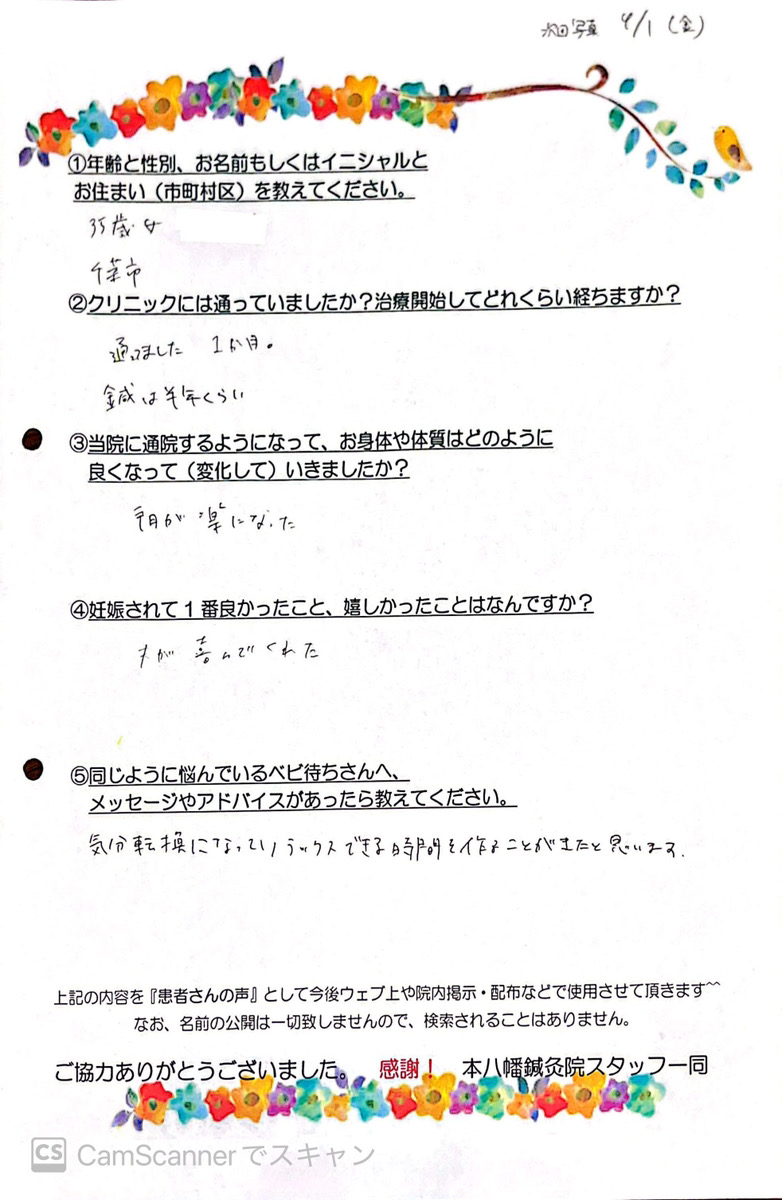 次回写真 4/1(金)
①年齢と性別、お名前もしくはイニシャルと
お住まい(市町村区)を教えてください。
35歳 女
千葉市
②クリニックには通っていましたか?治療開始してどれくらい経ちますか?
通ってました 1か月。
鍼は半年くらい
③当院に通院するようになって、お身体や体質はどのように
良くなって(変化して)いきましたか?
肩が楽になった
④妊娠されて1番良かったこと、嬉しかったことはなんですか?
夫が喜んでくれた
⑤同じように悩んでいるベビ待ちさんへ、
メッセージやアドバイスがあったら教えてください。
気分転換になってリラックスできる時間を作ることができたと思います。
上記の内容を『患者さんの声』として今後ウェブ上や院内掲示・配布などで使用させて頂きます^^
なお、名前の公開は一切致しませんので、検索されることはありません。
ご協力ありがとうございました。 感謝! 本八幡鍼灸院スタッフ一同
CS CamScannerでスキャン